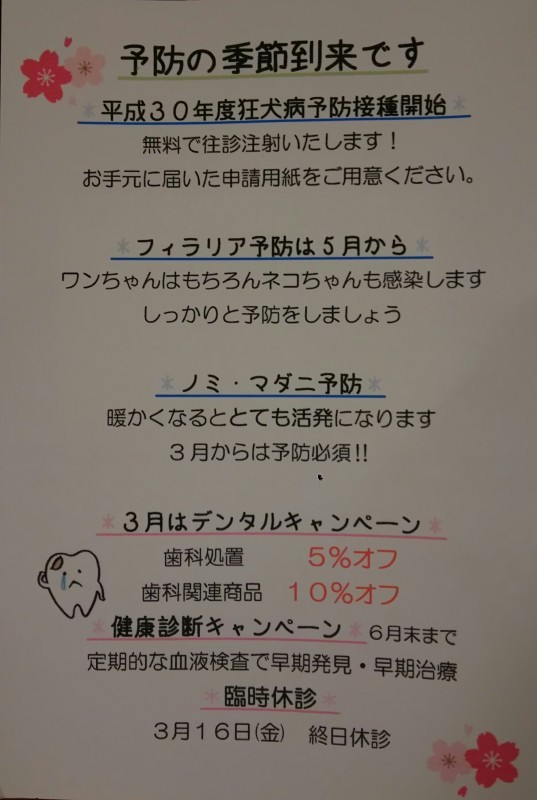 予防の季節到来です
*平成30年度狂犬病予防接種開始*
無料で往診注射いたします!
お手元に届いた申請用紙をご用意ください。
*フィラリア予防は5月から*
ワンちゃんはもちろんネコちゃんも感染します
しっかりと予防をしましょう
*ノミ・マダニ予防*
暖かくなるととても活発になります
3月からは予防必須!!
*3月はデンタルキャンペーン*
歯科処置 5%オフ
歯科関連商品 10%オフ
*健康診断キャンペーン*6月末まで
定期的な血液検査で早期発見・早期治療
*臨時休診*
3月16日(金) 終日休診